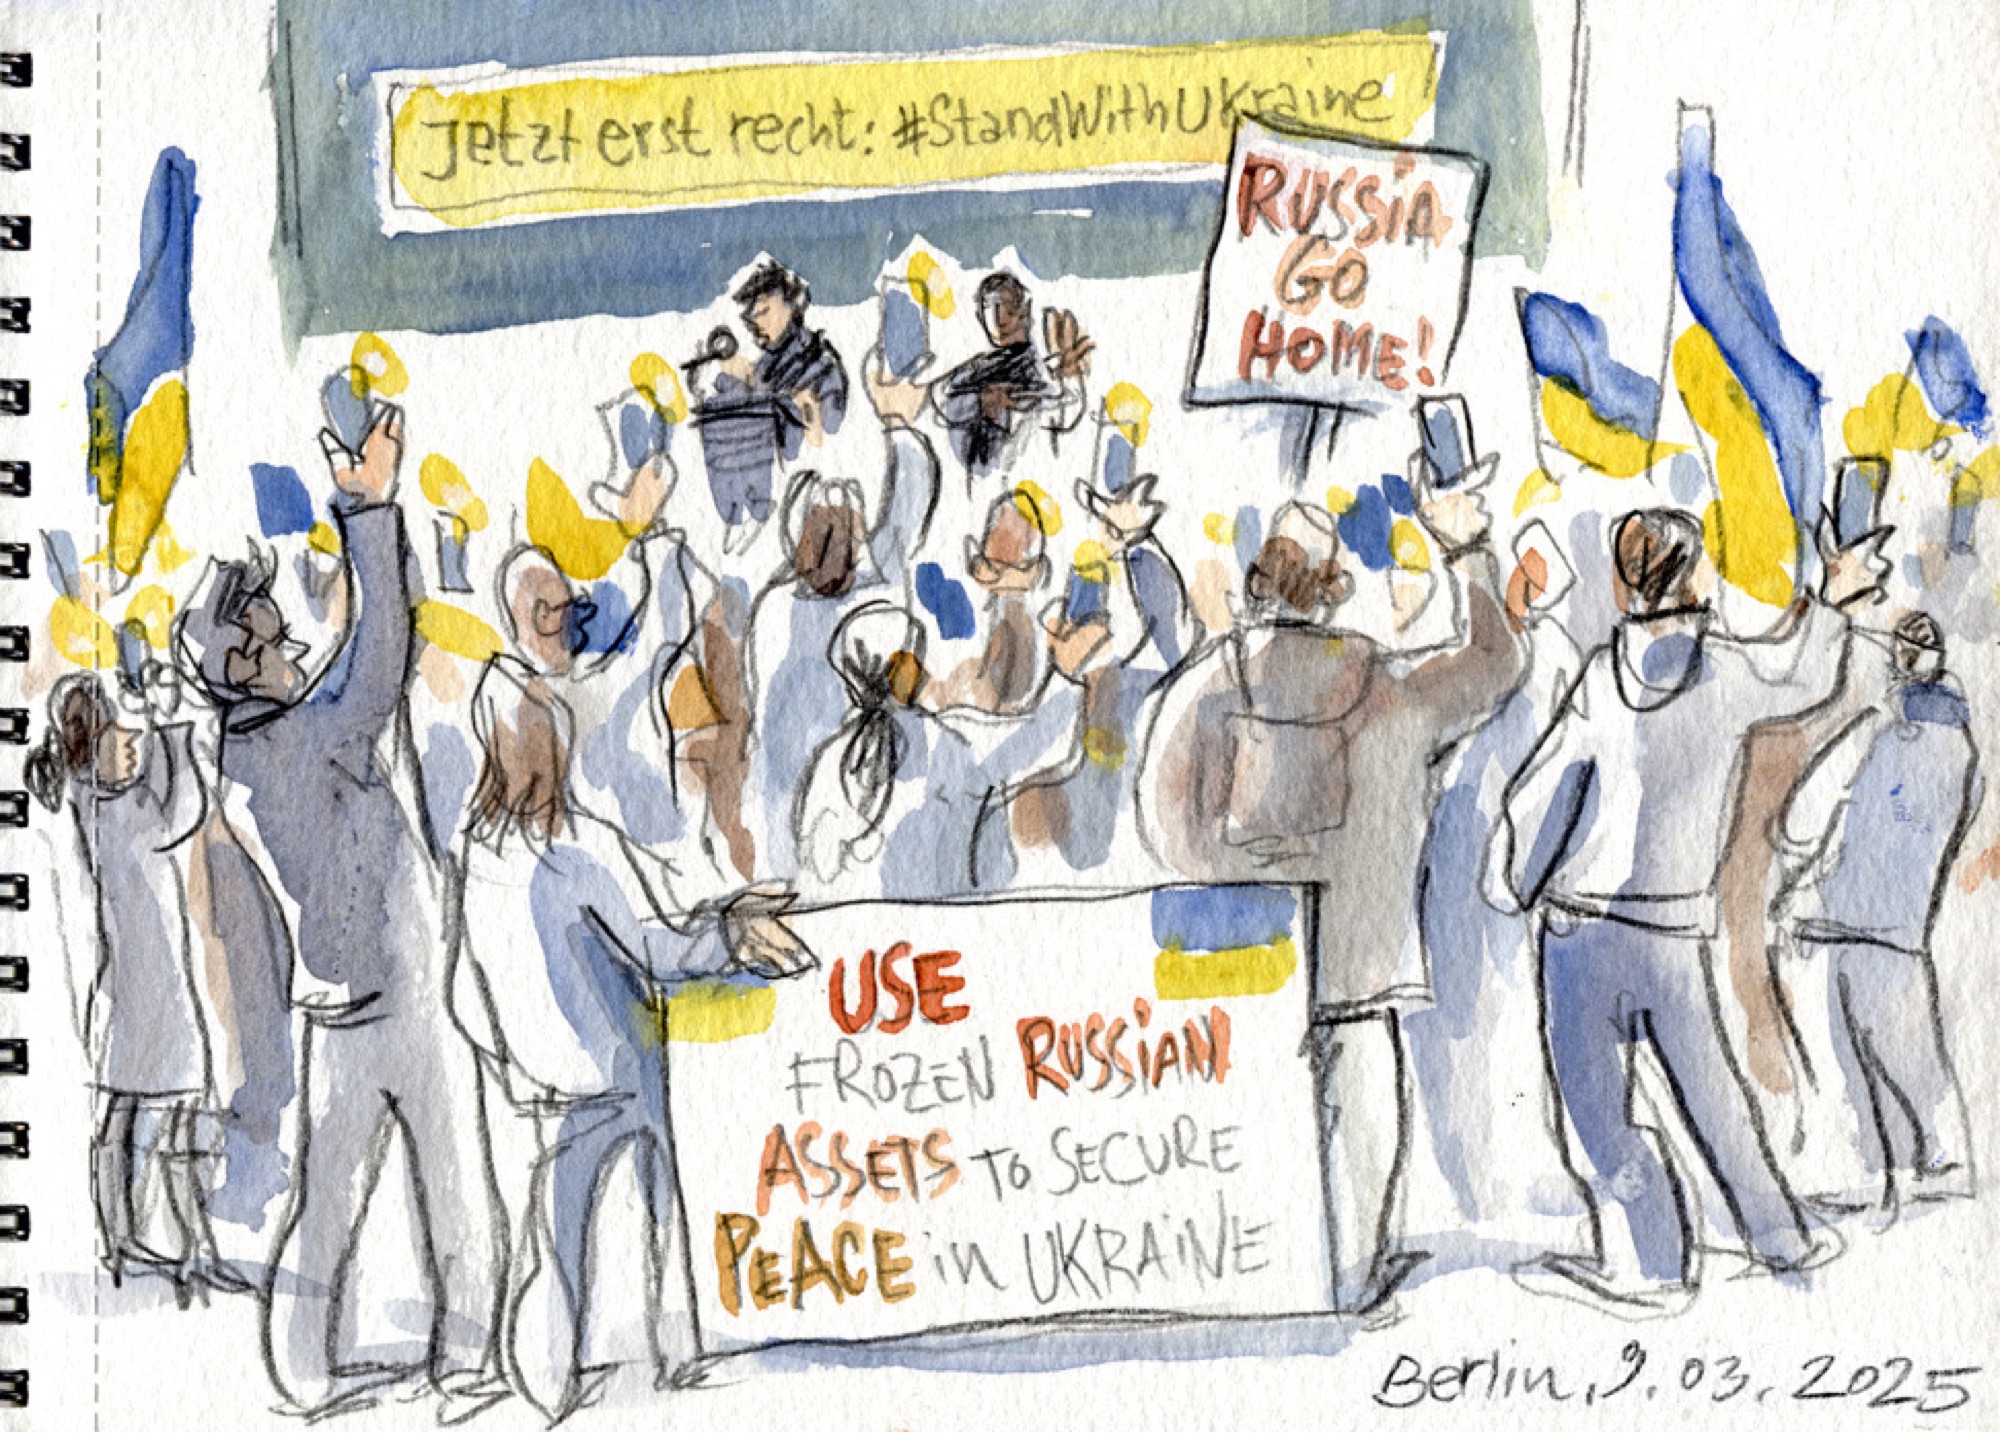 Jetzt erst recht: #StandWithUkraine
RUSSiA
GO
HOME!
USE
FROZEN RUSSiAN
ASSETS To SECURE
PeACE in UKRAiNE
Berlin, 9.03.2025